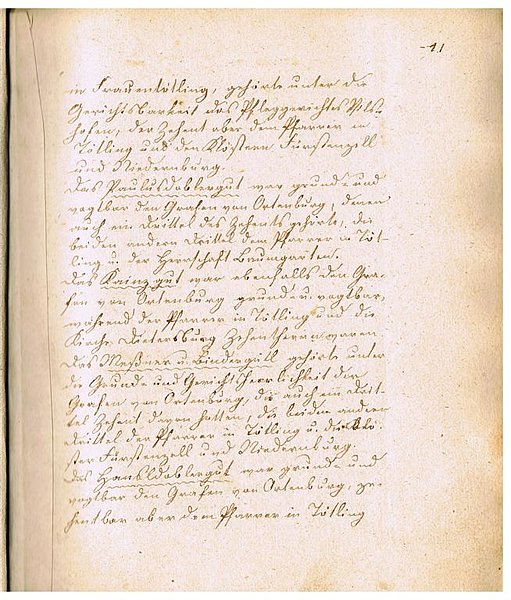 -11
in Frauentötling, gehörte unter die
Gerichtsbarkeit des Pfleggerichtes Vils-
hofen, der Zehent aber dem Pfarrer in
Tötling und den Klöstern Fürstenzell
und Niedernburg.
Das Paulusdoblergut war grund- und
vogtbar den Grafen von Ortenburg, denen
auch ein Drittel des Zehents gehörte, die
beiden andern Drittel dem Pfarrer in Töt-
ling u. der Herrschaft Baumgarten.
Das Kainzgut war ebenfalls den Gra-
fen von Ortenburg grund- u. vogtbar,
während der Pfarrer in Tötling und die
Kirche Dietersburg Zehentherrn waren.
Das Meßner u. Bindergütl gehörte unter
die Grund- und Gerichtsherrlichkeit der
Grafen von Ortenburg, die auch ein Drit-
tel Zehent davon hatten, die beiden andern
Drittel der Pfarrer in Tötling u. die Klö-
ster Fürstenzell und Niedernburg.
Das Hansldoblergut war grund- und
vogtbar den Grafen von Ortenburg, ze-
hentbar aber dem Pfarrer in Tötling